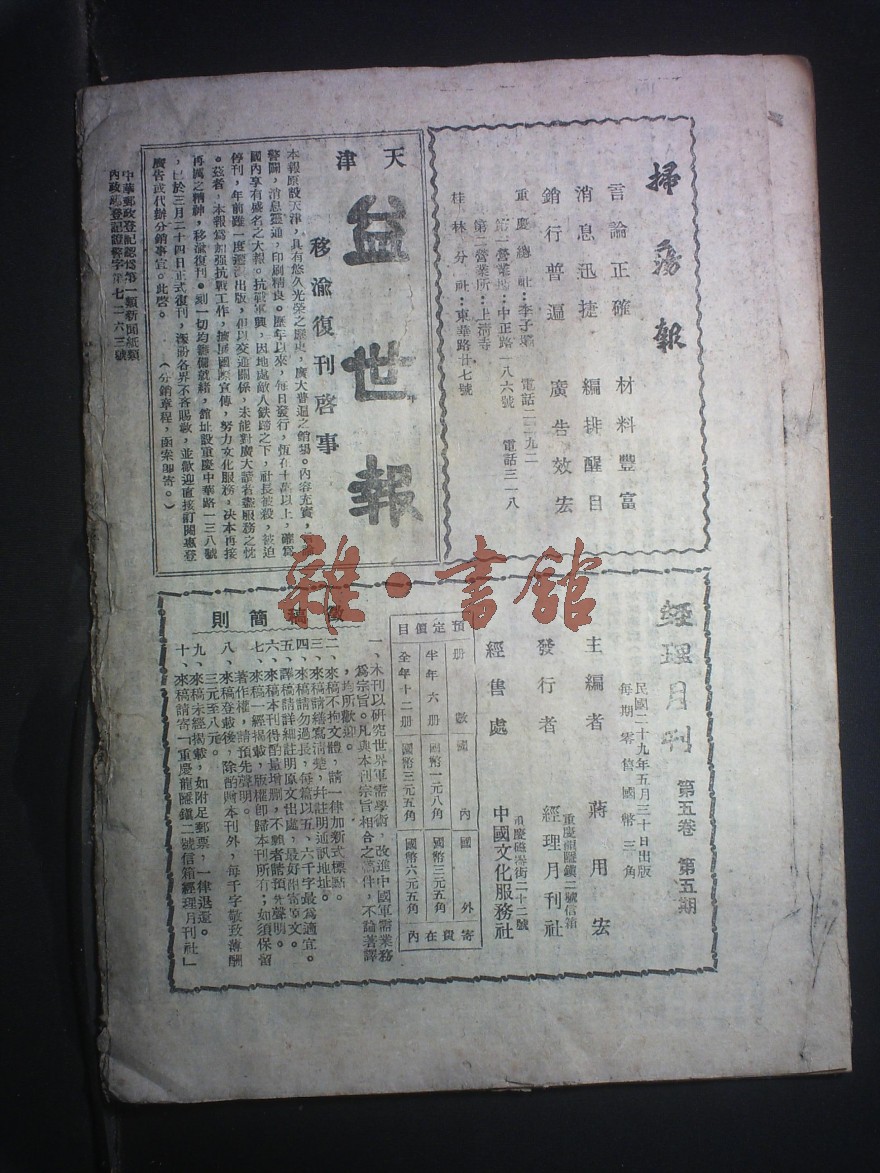 掃蕩報
言論正確　材料豐富
消息迅捷　編排醒目
銷行普遍　廣告效宏
重慶總社：李子壩　電話二二九二
第一營業所：中正路一八六號　電話三一八
第二營業所：上清寺
桂林分社：東華路廿七號
天津
益世報
移渝復刊啓事
本報原設天津，具有悠久光榮之歷史，廣大普遍之銷場。內容充實，
警闢，消息靈通，印刷精良。歷年以來，每日發行，恆在十萬以上，確為
國內享有盛名之大報。抗戰軍興，因地處敵人鉄蹄之下，社長被殺，被迫
停刊，年前雖一度遷滇出版，但以交通關係，未能對廣大讀者盡服務之忱
。茲者，本報為加強抗戰工作，擴展國際宣傳，努力文化服務，决本再接
再厲之精神，移渝復刊。刻一切均籌備就緒，館址設重慶中華路一三八號
，已於三月二十四日正式復刊，深盼各界不吝賜敎，並歡迎直接訂閱惠登
廣告或代辦分銷事宜。此啓。　（分銷章程，函索即寄。）
中華郵政登記認為第一類新聞紙類
內政部登記證警字第七二六三號
經理月刊　第五卷　第五期
民國二十九年五月三十日出版
每期零售國幣三角
主編者　蔣用宏
重慶龍隱鎮二號信箱
發行者　經理月刊社
重慶磁器街二十二號
經售處　中國文化服務社
預定價目
册數　國內　國外
半年六册　國幣一元八角　國幣三元五角
全年十二册　國幣三元五角　國幣六元五角
寄費在內
徵稿簡則
一、本刊以研究世界軍需學術，改進中國軍需業務
為宗旨。凡與本刊宗旨相合之稿件，不論著譯
，均所歡迎。
二、來稿不拘文體，請一律加新式標點。
三、來稿請繕寫清楚，幷註明通訊地址。
四、來稿請勿過長，每篇以五、六千字最為適宜。
五、譯稿請詳細註明原文出處，最好附寄原文。
六、來稿本刊得酌量增删，不願者請預先聲明。
七、來稿一經揭載，版權即歸本刊所有；如須保留
著作權，請預先聲明。
八、來稿登載後，除酌贈本刊外，每千字敬致薄酬
三元至八元。
九、來稿未經揭載，如附足郵票，一律退還。
十、來稿請寄「重慶龍隱鎮二號信箱經理月刊社」
雜·書館